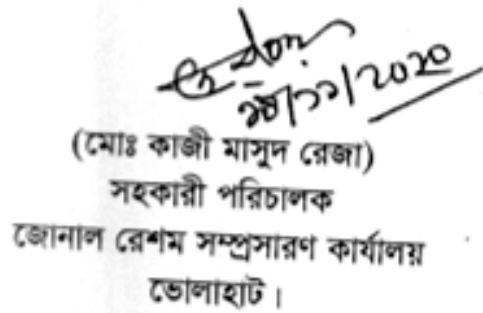 /১১/২০২০
(মোঃ কাজী মাসুদ রেজা)
সহকারী পরিচালক
জোনাল রেশম সম্প্রসারণ কার্যালয়
ভোলাহাট।